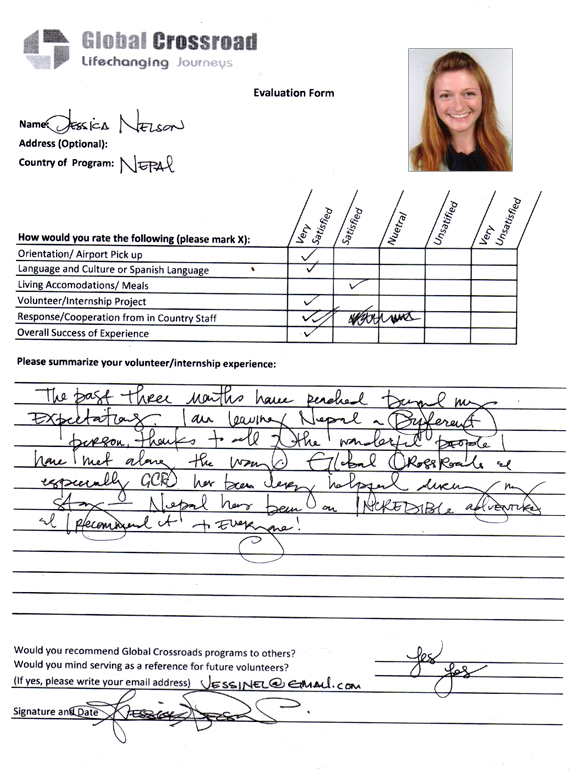 Global Crossroad
Lifechanging Journeys
Evaluation Form
Name: Jessica Nelson
Address (Optional):
Country of Program: Nepal
How would you rate the following (please mark X): Very Satisfied Satisfied Nuetral Unsatified Very Unsatisfied
Orientation/ Airport Pick up ✓
Language and Culture or Spanish Language ✓
Living Accomodations/ Meals ✓
Volunteer/Internship Project ✓
Response/Cooperation from in Country Staff ✓✓
Overall Success of Experience ✓
Please summarize your volunteer/internship experience:
The past three months have reached beyond my
Expectations. I am leaving Nepal a Different
person, thanks to all of the wonderful people I
have met along the way. Global Crossroads &
especially GCR has been very helpful during my
stay — Nepal has been an INCREDIBLE adventure
& I recommend it to Everyone!
Would you recommend Global Crossroads programs to others? Yes
Would you mind serving as a reference for future volunteers? Yes
(If yes, please write your email address) JESSINEL@EMAIL.COM
Signature and Date Jessica Nelson